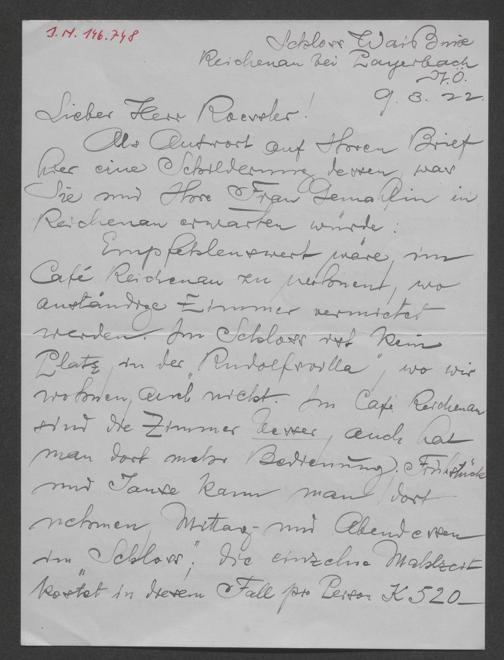 I.N. 146.748
Schloss Waisnix
Reichenau bei Payerbach
N.Ö.
9. 3. 22.
Lieber Herr Roessler!
Als Antwort auf Ihren Brief
hier eine Schilderung dessen, was
Sie und Ihre Frau Gemahlin in
Reichenau erwarten würde:
Empfehlenswert wäre, im
Café Reichenau zu wohnen, wo
anständige Zimmer vermietet
werden. Im Schloss ist kein
Platz, in der "Rudolfsvilla", wo wir
wohnen, auch nicht. Im Café Reichenau
sind die Zimmer besser, auch hat
man dort mehr Bedienung. Frühstück
und Jause kann man dort
nehmen, Mittag- und Abendessen
im "Schloss"; die einzelne Mahlzeit
kostet in diesem Fall pro Person K 520_